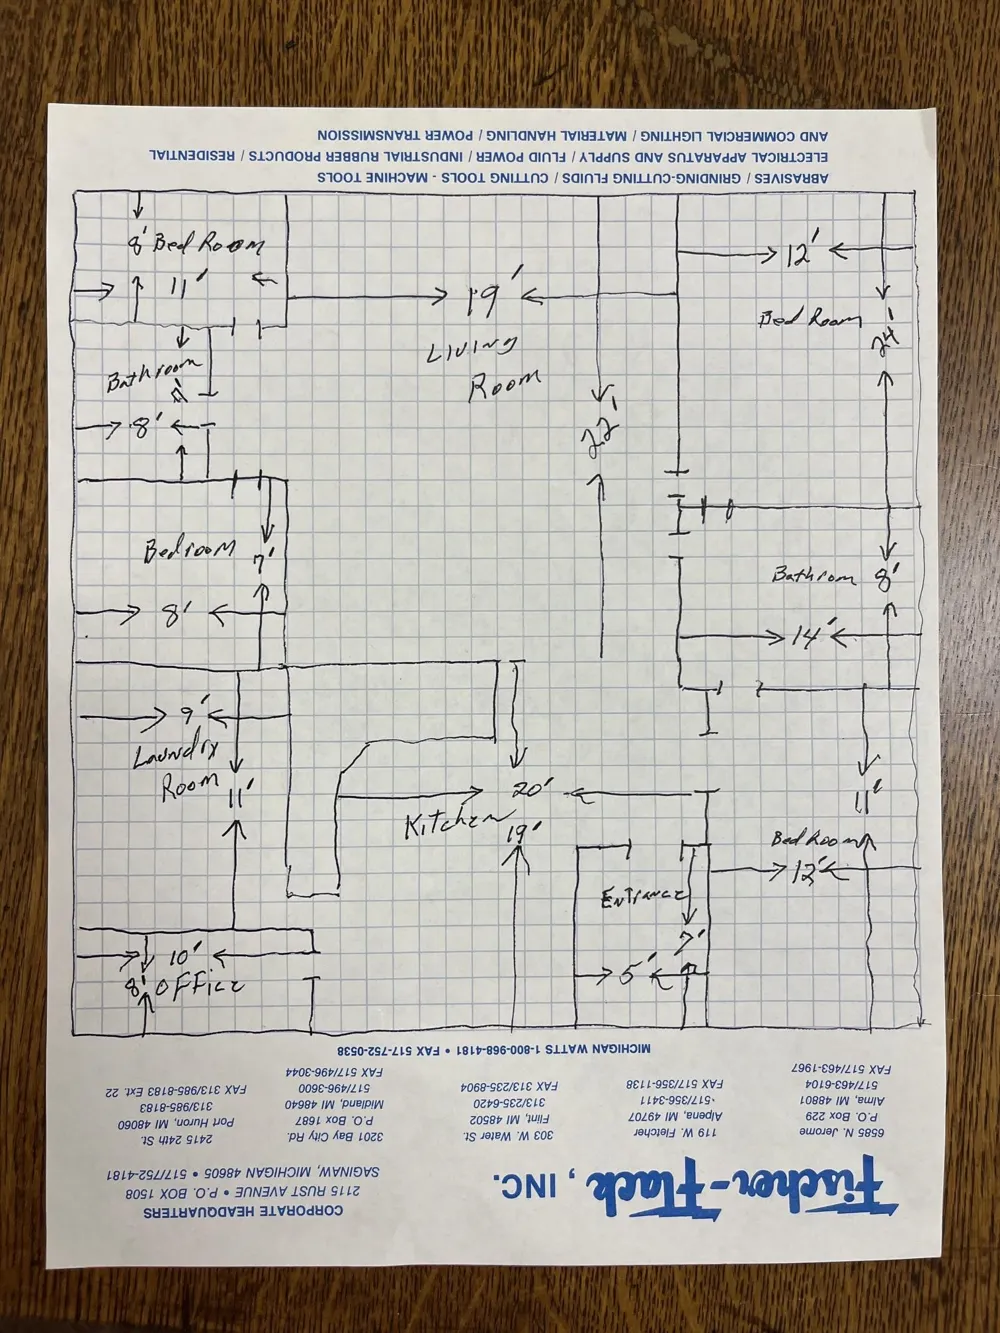 ABRASIVES / GRINDING-CUTTING FLUIDS / CUTTING TOOLS - MACHINE TOOLS
ELECTRICAL APPARATUS AND SUPPLY / FLUID POWER / INDUSTRIAL RUBBER PRODUCTS / RESIDENTIAL
AND COMMERCIAL LIGHTING / MATERIAL HANDLING / POWER TRANSMISSION
8' Bed Room
11'
19'
Living
Room
12'
Bed Room
24'
Bathroom
8'
22'
Bedroom
7'
8'
Bathroom 8'
14'
9'
Laundry
Room
11'
20'
Kitchen
19'
11'
Bed Room
12'
Entrance
7'
5'
10'
8' Office
Fischer-Flack, INC.
CORPORATE HEADQUARTERS
2115 RUST AVENUE • P.O. BOX 1508
SAGINAW, MICHIGAN 48605 • 517/752-4181
6585 N. Jerome
P.O. Box 229
Alma, MI 48801
517/463-6104
FAX 517/463-1967
119 W. Fletcher
Alpena, MI 49707
517/356-3411
FAX 517/356-1138
303 W. Water St.
Flint, MI 48502
313/235-6420
FAX 313/235-8904
3201 Bay City Rd.
P.O. Box 1687
Midland, MI 48640
517/496-3600
FAX 517/496-3044
2415 24th St.
Port Huron, MI 48060
313/985-8183
FAX 313/985-8183 Ext. 22
MICHIGAN WATTS 1-800-968-4181 • FAX 517-752-0538